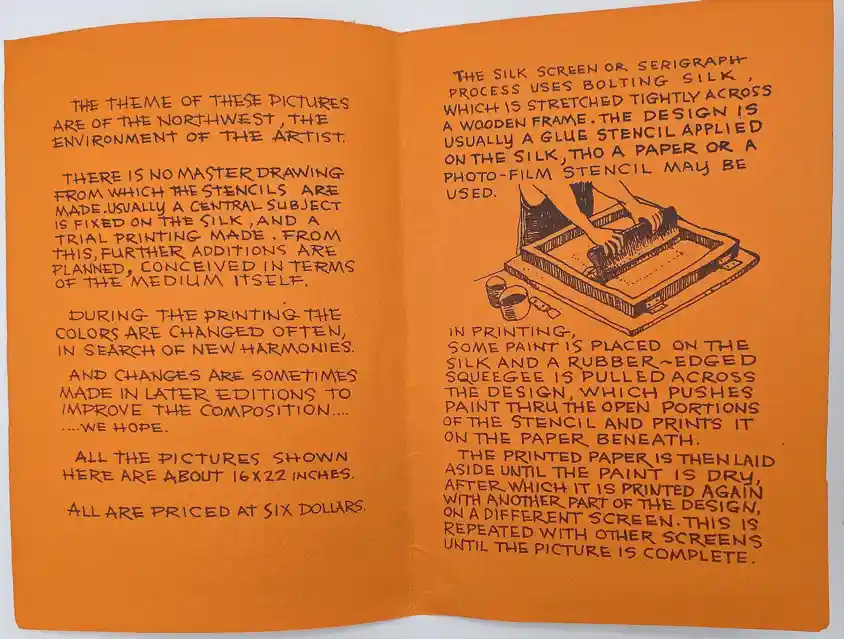 THE THEME OF THESE PICTURES
ARE OF THE NORTHWEST, THE
ENVIRONMENT OF THE ARTIST.
THERE IS NO MASTER DRAWING
FROM WHICH THE STENCILS ARE
MADE. USUALLY A CENTRAL SUBJECT
IS FIXED ON THE SILK, AND A
TRIAL PRINTING MADE. FROM
THIS, FURTHER ADDITIONS ARE
PLANNED, CONCEIVED IN TERMS
OF THE MEDIUM ITSELF.
DURING THE PRINTING THE
COLORS ARE CHANGED OFTEN,
IN SEARCH OF NEW HARMONIES.
AND CHANGES ARE SOMETIMES
MADE IN LATER EDITIONS TO
IMPROVE THE COMPOSITION....
....WE HOPE.
ALL THE PICTURES SHOWN
HERE ARE ABOUT 16X22 INCHES.
ALL ARE PRICED AT SIX DOLLARS.
THE SILK SCREEN OR SERIGRAPH
PROCESS USES BOLTING SILK,
WHICH IS STRETCHED TIGHTLY ACROSS
A WOODEN FRAME. THE DESIGN IS
USUALLY A GLUE STENCIL APPLIED
ON THE SILK, THO A PAPER OR A
PHOTO-FILM STENCIL MAY BE
USED.
IN PRINTING,
SOME PAINT IS PLACED ON THE
SILK AND A RUBBER~EDGED
SQUEEGEE IS PULLED ACROSS
THE DESIGN, WHICH PUSHES
PAINT THRU THE OPEN PORTIONS
OF THE STENCIL AND PRINTS IT
ON THE PAPER BENEATH.
THE PRINTED PAPER IS THEN LAID
ASIDE UNTIL THE PAINT IS DRY,
AFTER WHICH IT IS PRINTED AGAIN
WITH ANOTHER PART OF THE DESIGN,
ON A DIFFERENT SCREEN. THIS IS
REPEATED WITH OTHER SCREENS
UNTIL THE PICTURE IS COMPLETE.